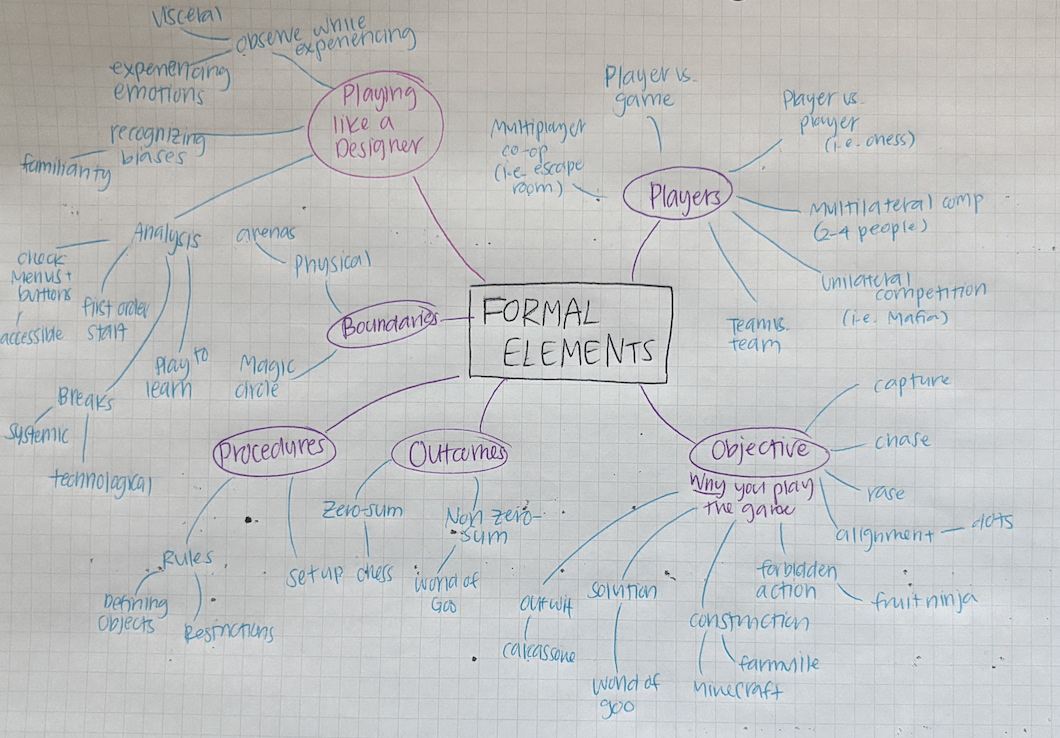 Visceral
observe while
experiencing
experiencing
emotions
recognizing
biases
familiarity
Playing
like a
Designer
Analysis
check
Menus +
buttons
accessible
first order
start
Play to
learn
Breaks
systemic
technological
arenas
Physical
Boundaries
Magic
circle
FORMAL
ELEMENTS
Player vs.
game
Multiplayer
co-op
(i.e. escape
room)
Players
Player vs.
player
(i.e. chess)
Multilateral comp
(2-4 people)
Unilateral
competition
(i.e. Mafia)
Team vs.
team
Procedures
Rules
Defining
Objects
Restrictions
set up
Outcomes
Zero-sum
chess
Non zero-
sum
World of
Goo
Objective
Why you play
the game
capture
chase
race
alignment
dots
forbidden
action
fruit ninja
construction
farmville
Minecraft
solution
World of
goo
outwit
calcassone